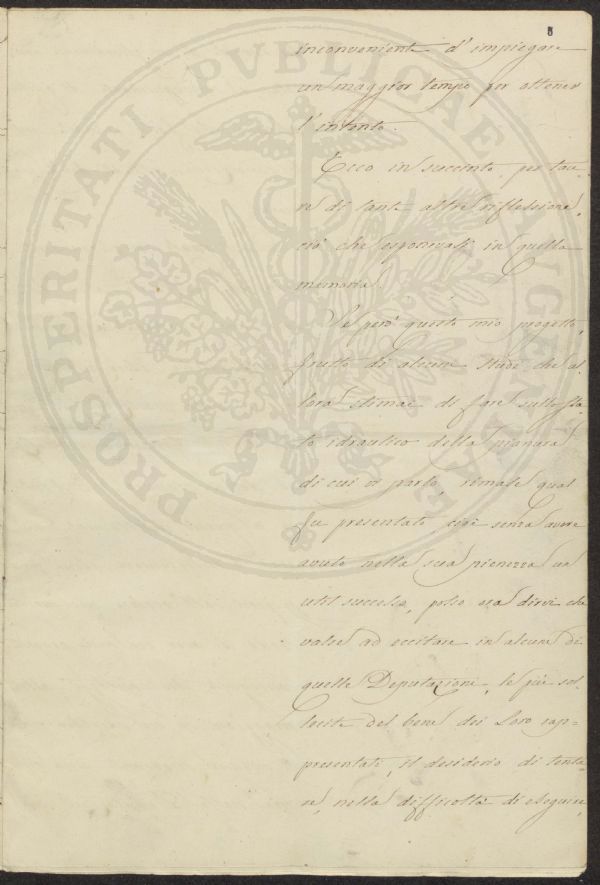 inconveniente d'impiegare
un maggior tempo per ottener
l'intento.
Ecco in succinto, per tace-
re di tante altre riflessioni,
ciò che esponevasi in quella
memoria.
Se però questo mio progetto,
frutto di alcuni studi che al-
lora stimai di fare sullo sta-
to idraulico della pianura
di cui vi parlo, rimase qual
fu presentato, cioè senza avere
avuto nella sua pienezza un
util successo, posso ora dirvi che
valse ad eccitare in alcune di
quelle Deputazioni, le più sol-
lecite del bene dei Loro rap-
presentati, il desiderio di tenta-
re, nella difficoltà di eseguire
PROSPERITATI PVBLICAE AVGENDAE